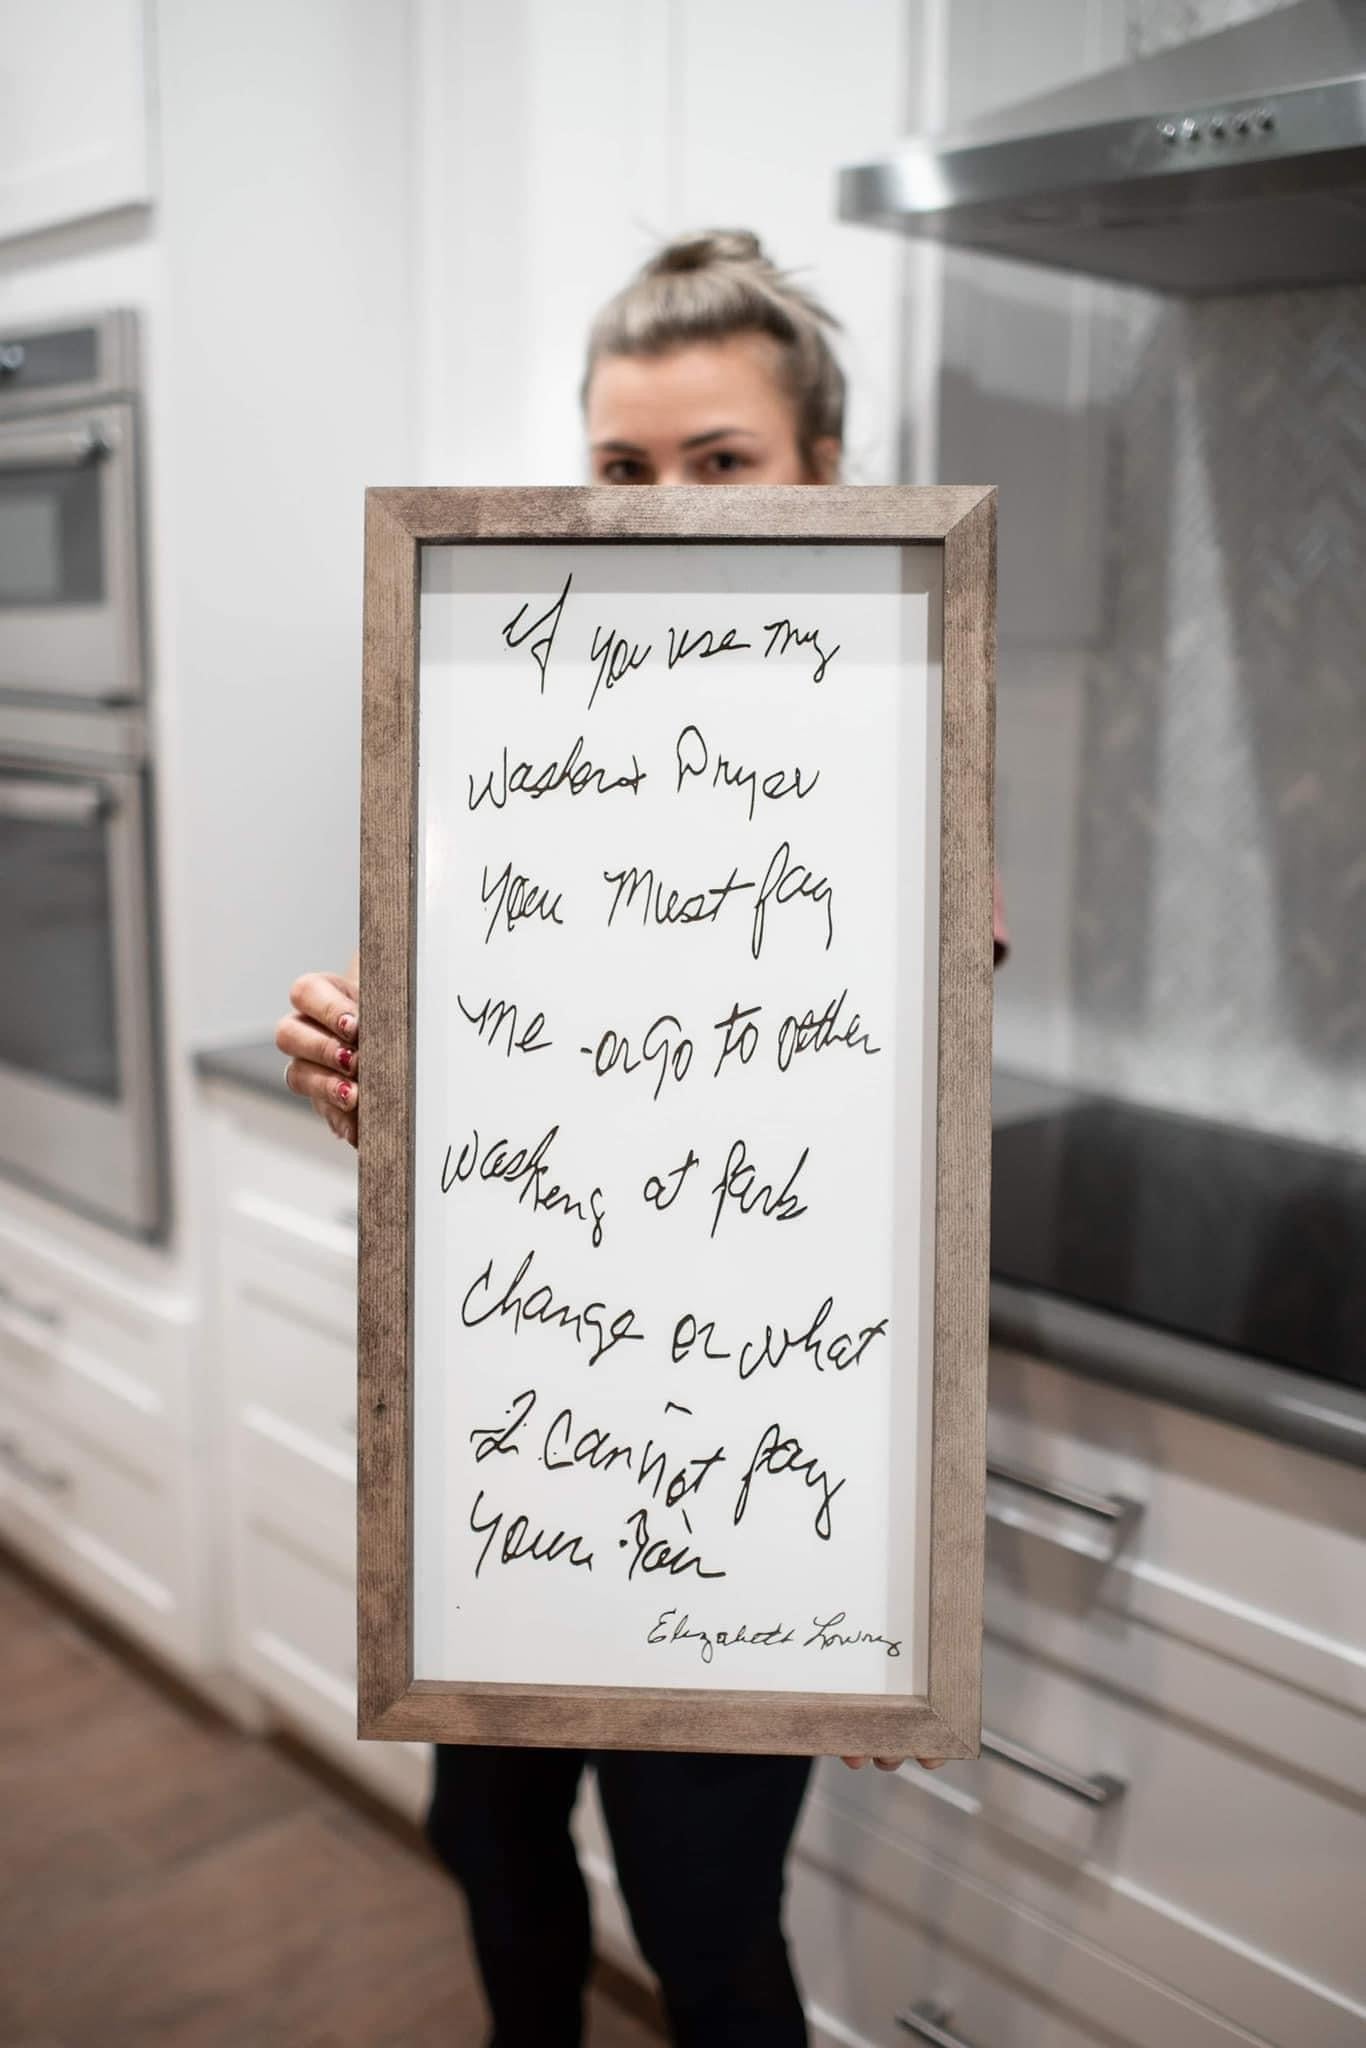 If you use my
Washer & Dryer
You Must pay
Me - or go to other
washing at park
Change or what
I can not pay
Your
Elizabeth Lowrey